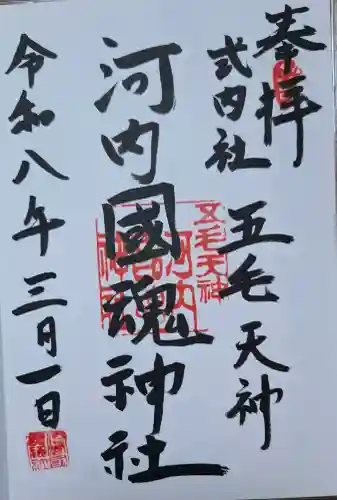 奉拝
式内社 五毛天神
河内國魂神社
五毛天神
河内
令和八年三月一日